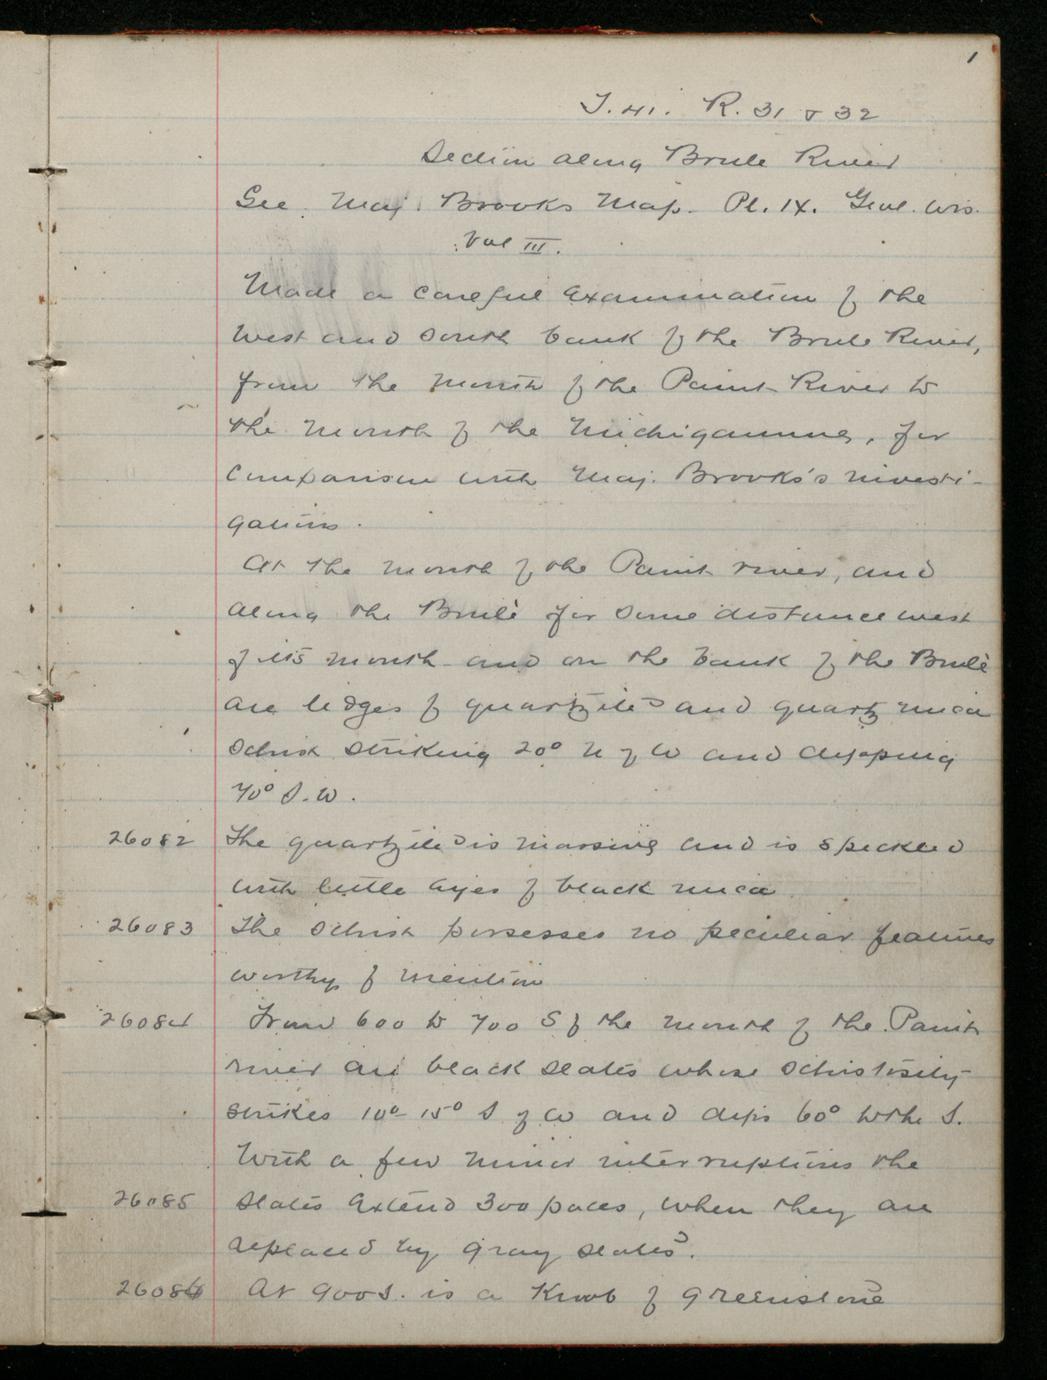 1
T. 41. R. 31 & 32
Section along Brule River
See Maj. Brooks Map. Pl. IX. Geol. Wis.
Vol III.
Made a careful examination of the
west and south bank of the Brule River,
from the mouth of the Paint River to
the mouth of the Michigamme, for
comparison with Maj. Brooks's investi-
gations.
At the mouth of the Paint river, and
along the Brulè for some distance west
of its mouth and on the bank of the Brulè
are ledges of quartzite and quartz mica
schist striking 20° N of W and dipping
70° S.W.
26082 The quartzite is massive and is speckled
with little eyes of black mica.
26083 The schist possesses no peculiar features
worthy of mention
26084 From 600 to 700 S of the mouth of the Paint
river are black slates whose schistosity
strikes 10°-15° S of W and dips 60° to the S.
With a few minor interruptions the
26085 slates extend 300 paces, when they are
replaced by gray slates.
26086 At 900 S. is a Knob of greenstone